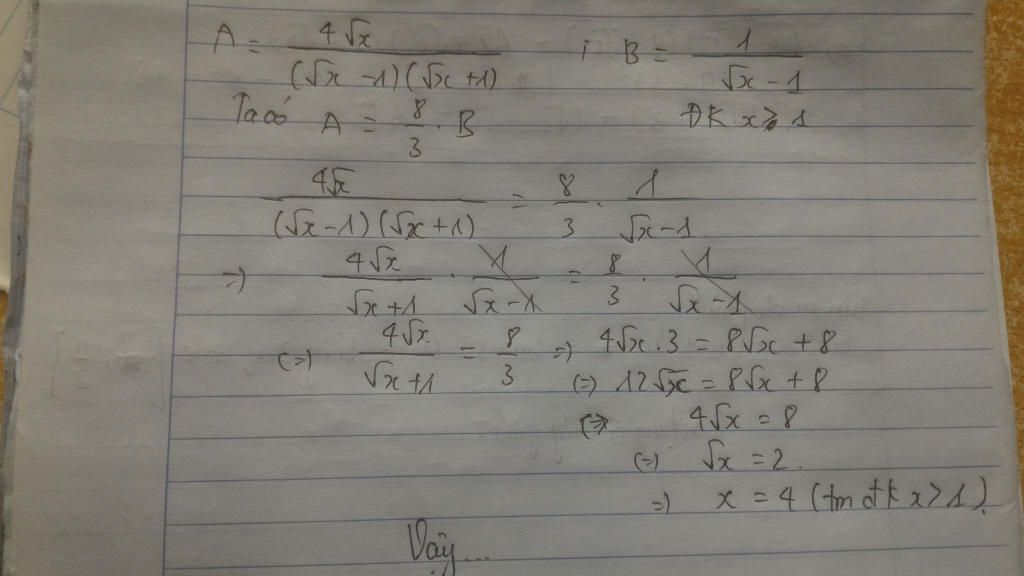 A = 4√x / (√x - 1)(√x + 1) ; B = 1 / √x - 1
Ta có A = 8/3 . B ĐK x > 1
4√x / (√x - 1)(√x + 1) = 8/3 . 1 / √x - 1
=) 4√x / √x + 1 . 1 / √x - 1 = 8/3 . 1 / √x - 1
(=) 4√x / √x + 1 = 8/3 =) 4√x . 3 = 8√x + 8
(=) 12√x = 8√x + 8
(=) 4√x = 8
(=) √x = 2.
=) x = 4 (tm đk x > 1).
Vậy...